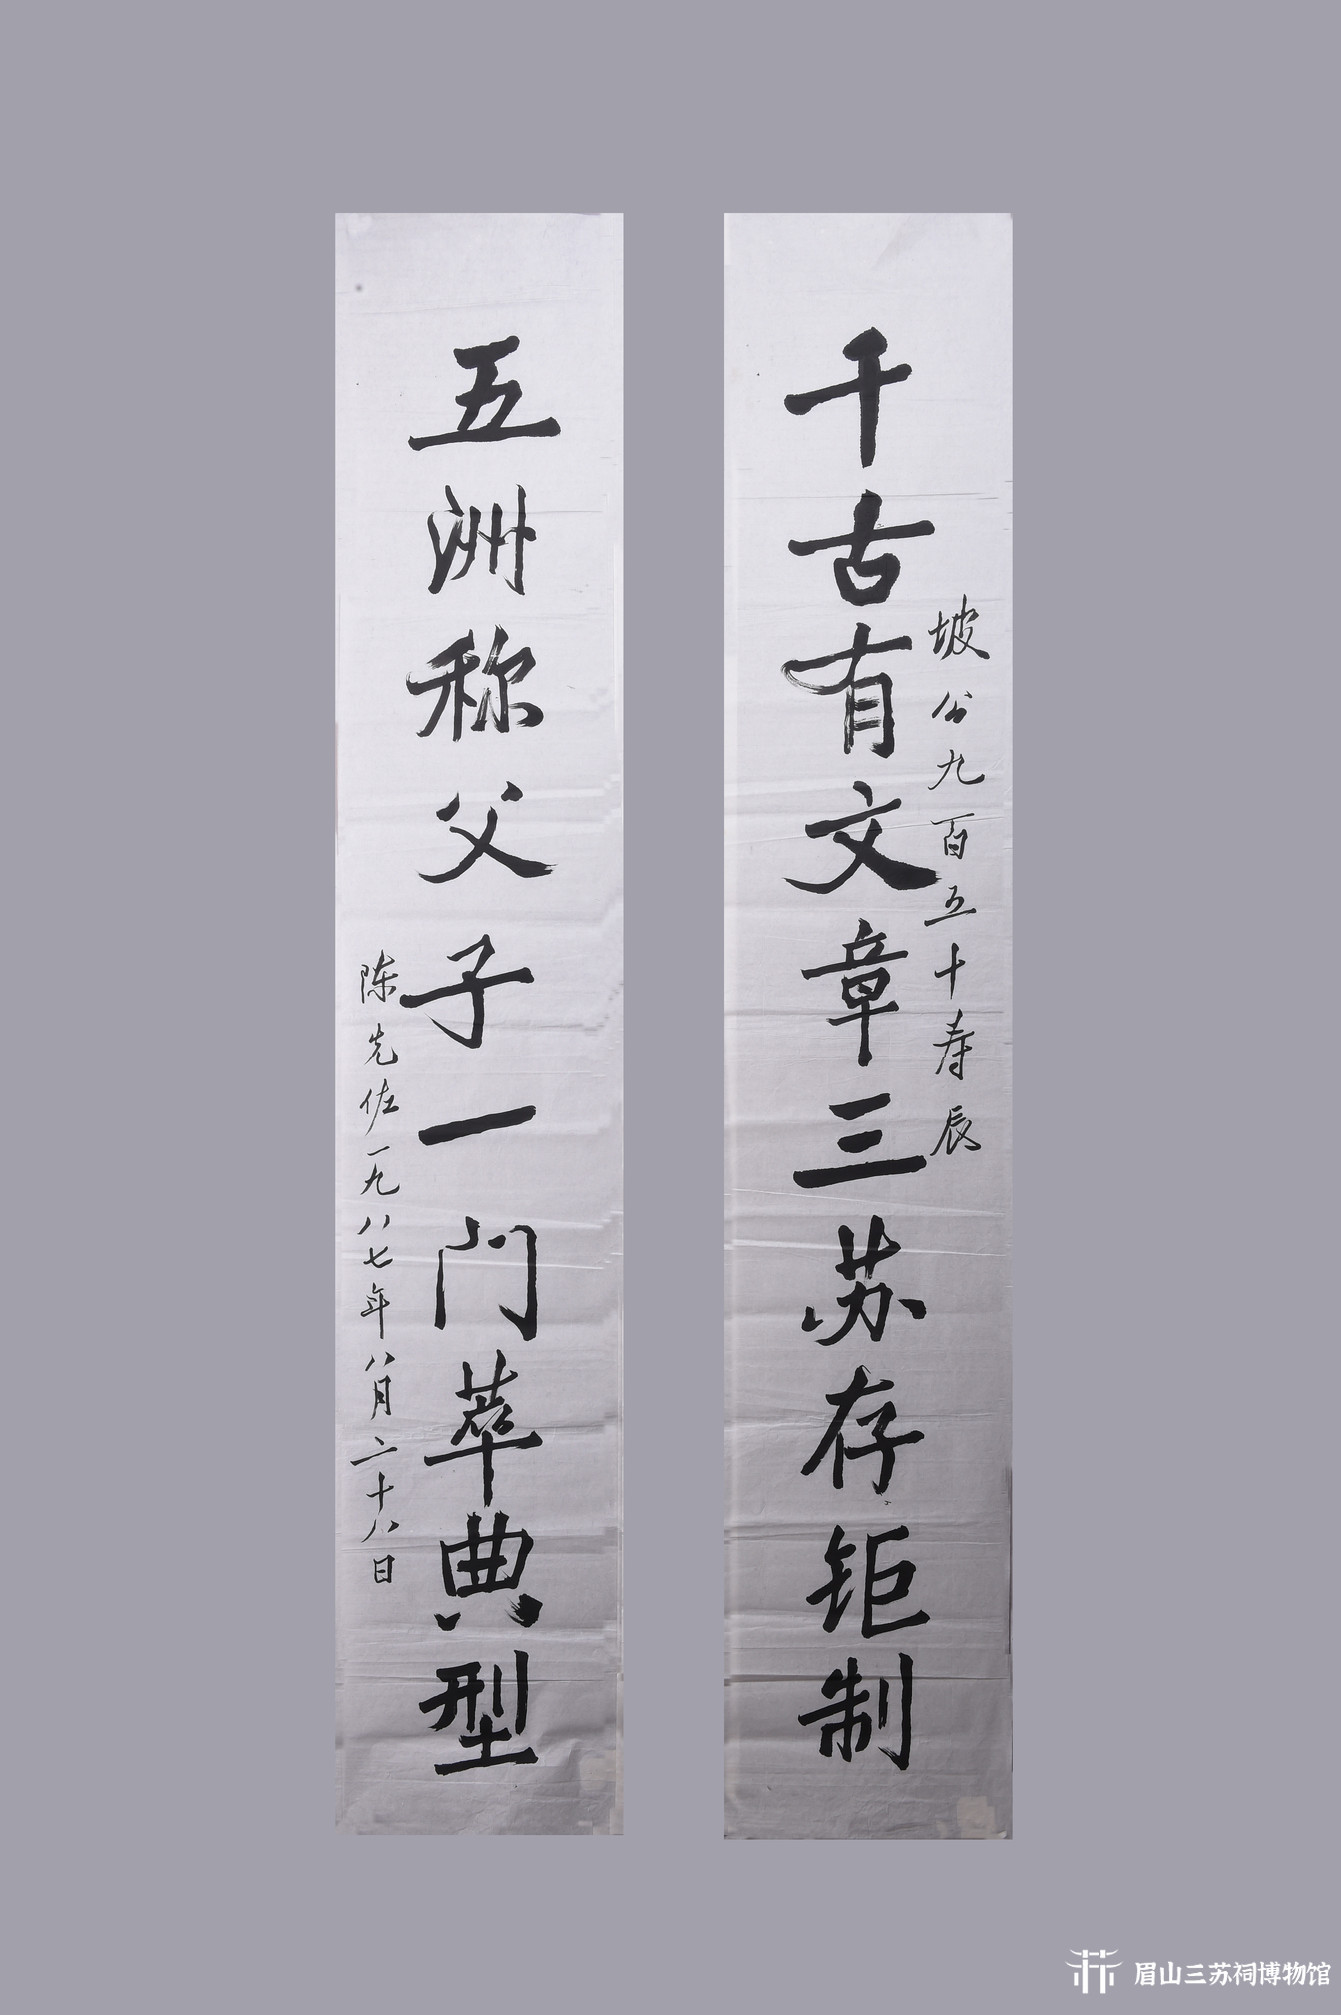 坡公九百五十寿辰
千古有文章三苏存钜制
五洲称父子一门萃典型
陈先佐一九八七年八月二十八日
眉山三苏祠博物馆